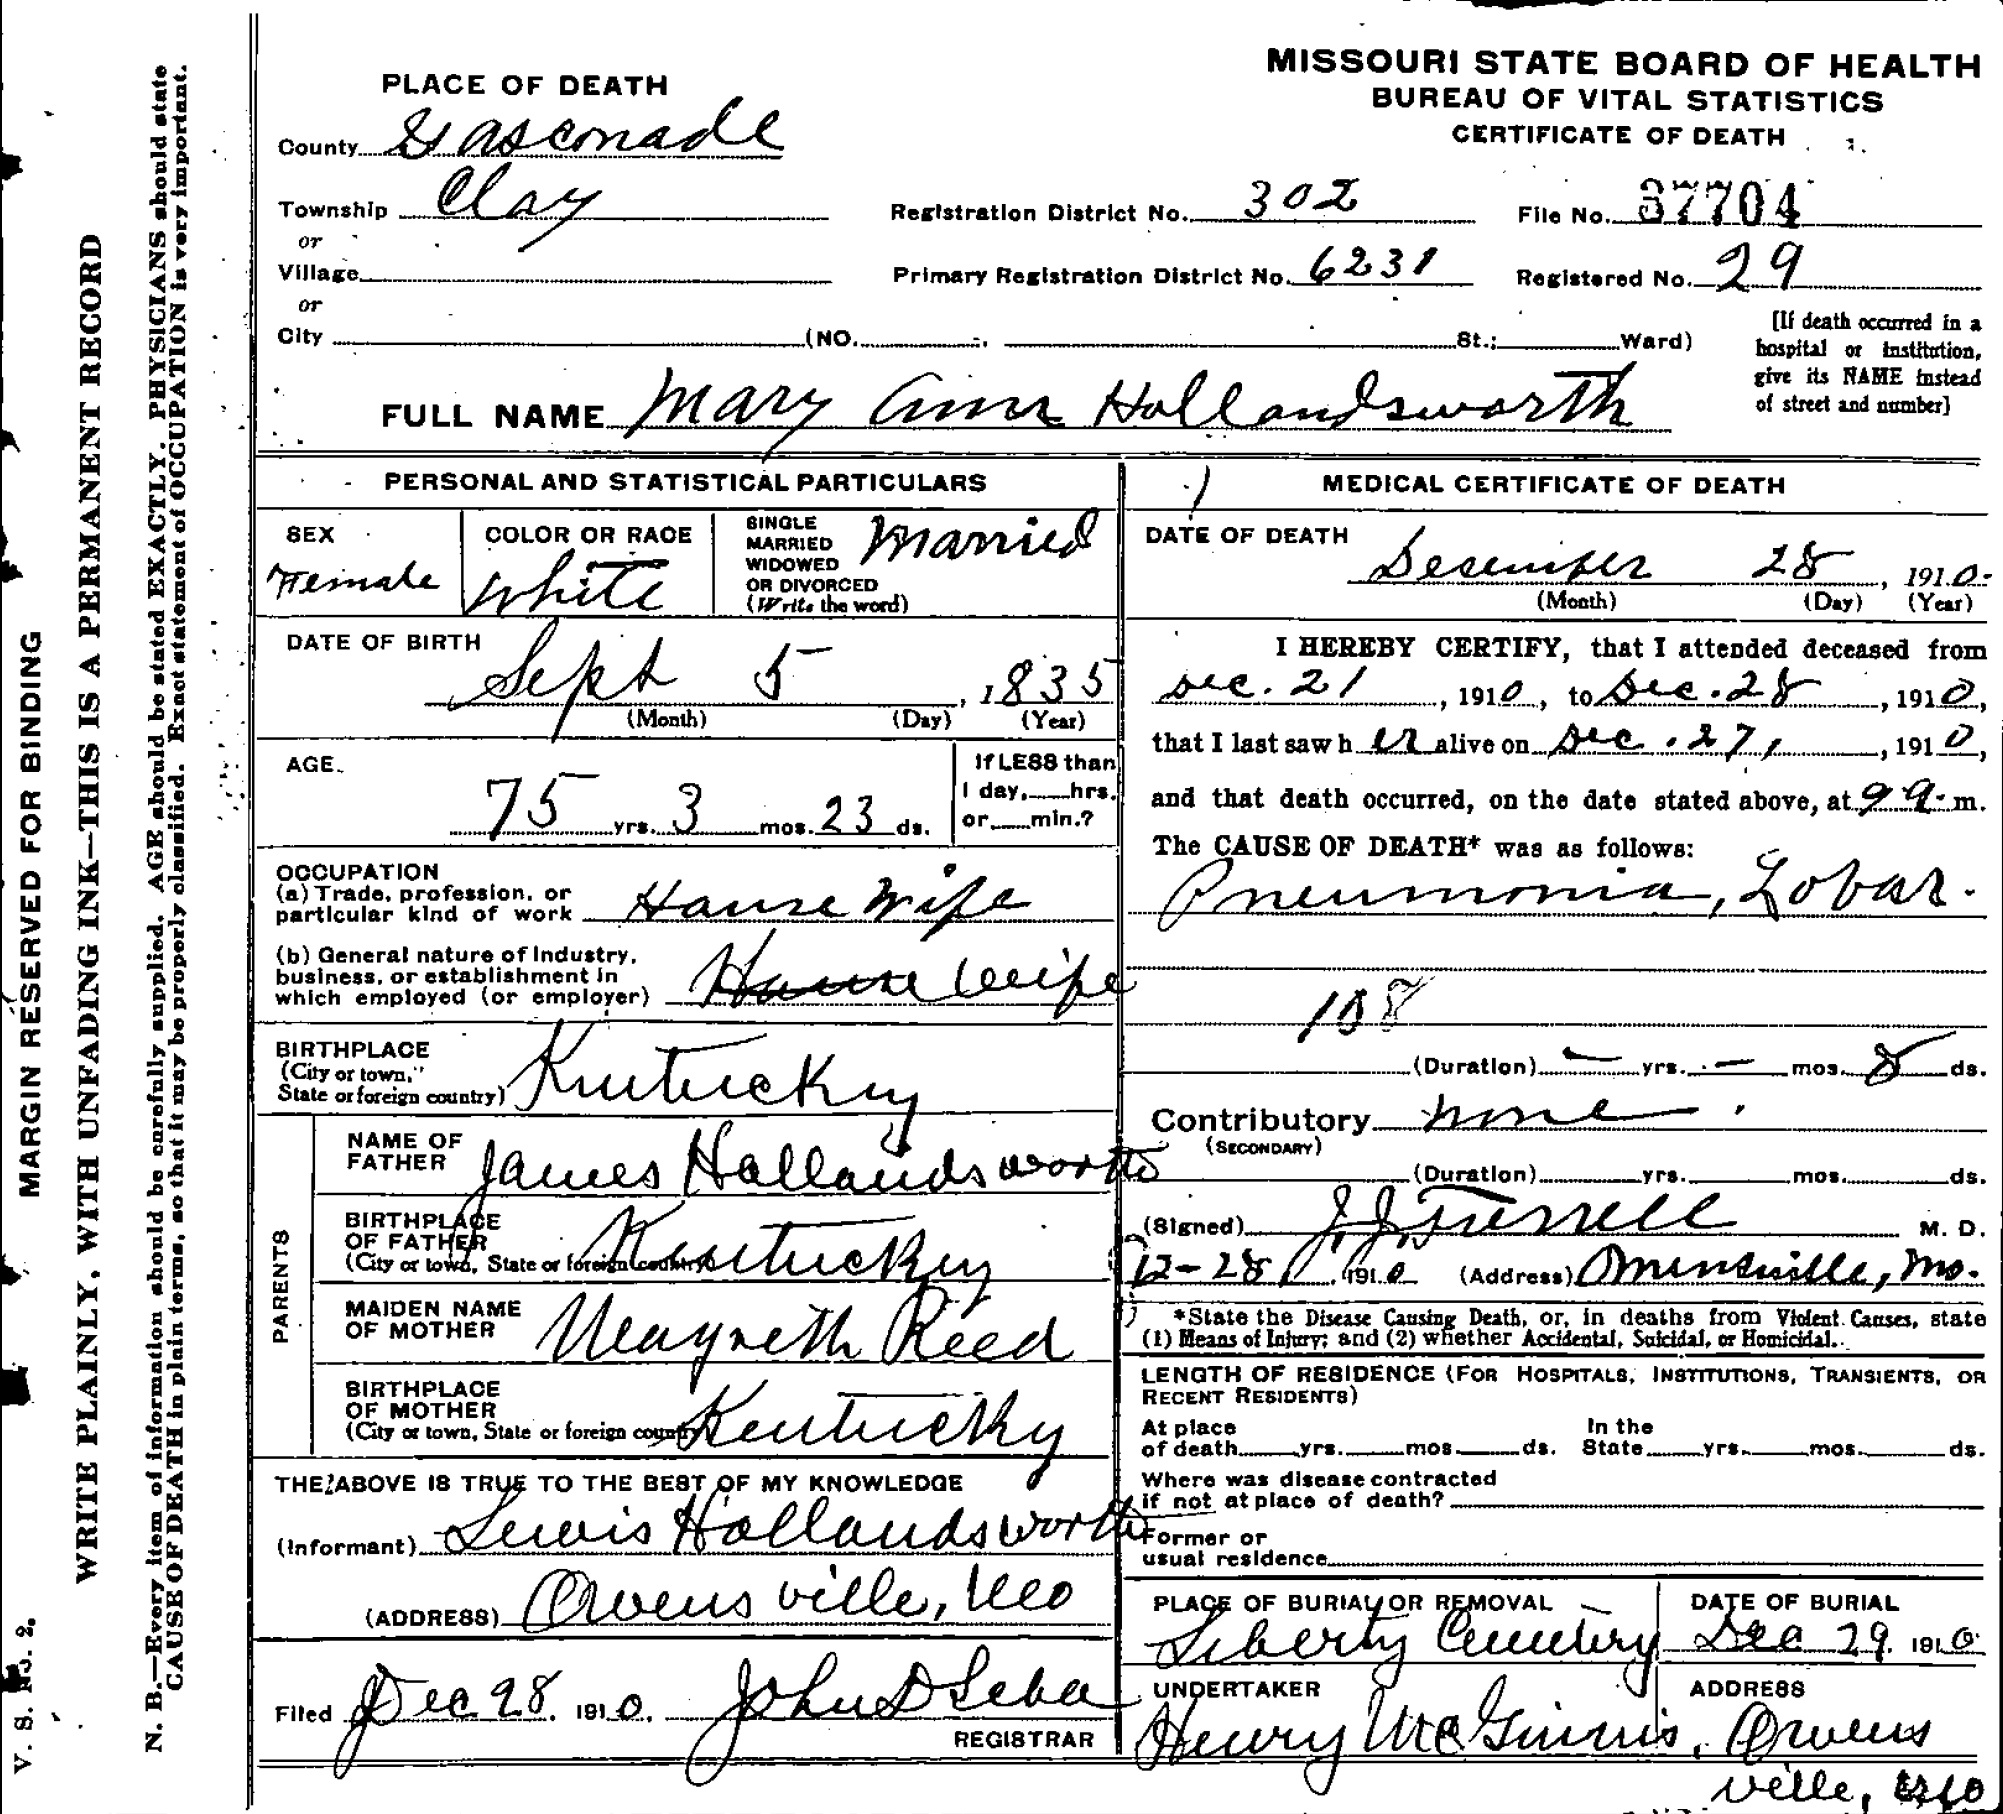 MARGIN RESERVED FOR BINDING
WRITE PLAINLY, WITH UNFADING INK—THIS IS A PERMANENT RECORD
N. B.—Every item of information should be carefully supplied. AGE should be stated EXACTLY. PHYSICIANS should state
CAUSE OF DEATH in plain terms, so that it may be properly classified. Exact statement of OCCUPATION is very important.
V. S. No. 2.
MISSOURI STATE BOARD OF HEALTH
BUREAU OF VITAL STATISTICS
CERTIFICATE OF DEATH
PLACE OF DEATH
County Gasconade
Township Clay Registration District No. 302 File No. 37704
or
Village Primary Registration District No. 6231 Registered No. 29
or
City (NO. St.; Ward)
[If death occurred in a
hospital or institution,
give its NAME instead
of street and number]
FULL NAME Mary Ann Hollandsworth
PERSONAL AND STATISTICAL PARTICULARS
SEX
Female
COLOR OR RACE
White
SINGLE
MARRIED
WIDOWED
OR DIVORCED
(Write the word)
Married
DATE OF BIRTH
Sept 5, 1835
(Month) (Day) (Year)
AGE
75 yrs. 3 mos. 23 ds.
If LESS than
1 day, hrs.
or min.?
OCCUPATION
(a) Trade, profession, or
particular kind of work House Wife
(b) General nature of Industry,
business, or establishment in
which employed (or employer) House Wife
BIRTHPLACE
(City or town,
State or foreign country) Kentucky
PARENTS
NAME OF
FATHER James Hollandsworth
BIRTHPLACE
OF FATHER
(City or town, State or foreign country) Kentucky
MAIDEN NAME
OF MOTHER Reed
BIRTHPLACE
OF MOTHER
(City or town, State or foreign country) Kentucky
THE ABOVE IS TRUE TO THE BEST OF MY KNOWLEDGE
(Informant) Lewis Hollandsworth
(ADDRESS) Owensville, Mo
Filed Dec 28, 1910. John D Seba
REGISTRAR
MEDICAL CERTIFICATE OF DEATH
DATE OF DEATH
December 28, 1910.
(Month) (Day) (Year)
I HEREBY CERTIFY, that I attended deceased from
Dec. 21, 1910, to Dec. 28, 1910,
that I last saw her alive on Dec. 27, 1910,
and that death occurred, on the date stated above, at 9 a. m.
The CAUSE OF DEATH* was as follows:
Pneumonia, Lobar.
108
(Duration) — yrs. — mos. 8 ds.
Contributory none.
(SECONDARY)
(Duration) yrs. mos. ds.
(Signed) J. J. Ferrell M. D.
12-28, 1910 (Address) Owensville, Mo.
*State the Disease Causing Death, or, in deaths from Violent Causes, state
(1) Means of Injury; and (2) whether Accidental, Suicidal, or Homicidal.
LENGTH OF RESIDENCE (FOR HOSPITALS, INSTITUTIONS, TRANSIENTS, OR
RECENT RESIDENTS)
At place In the
of death yrs. mos. ds. State yrs. mos. ds.
Where was disease contracted
if not at place of death?
Former or
usual residence
PLACE OF BURIAL OR REMOVAL
Liberty Cemetery
DATE OF BURIAL
Dec 29, 1910
UNDERTAKER
Henry McGinnis,
ADDRESS
Owens
ville, Mo